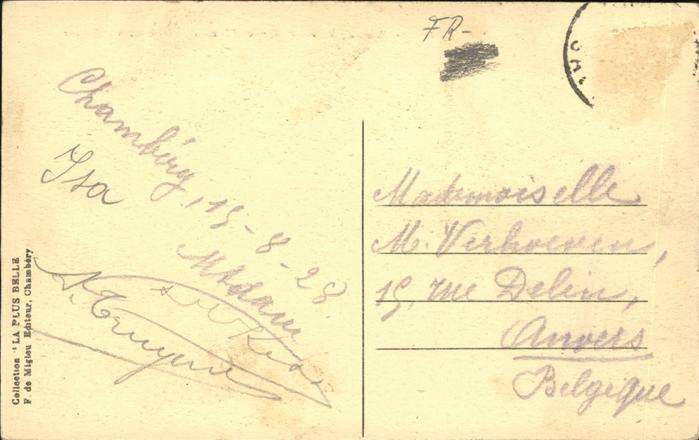 FR-
Chambéry, 15-8-28
Isa
Madam
Mademoiselle
M. Verhoeven,
15, rue Delin,
Anvers
Belgique
Collection "LA PLUS BELLE
F. de Miglou Editeur, Chambéry